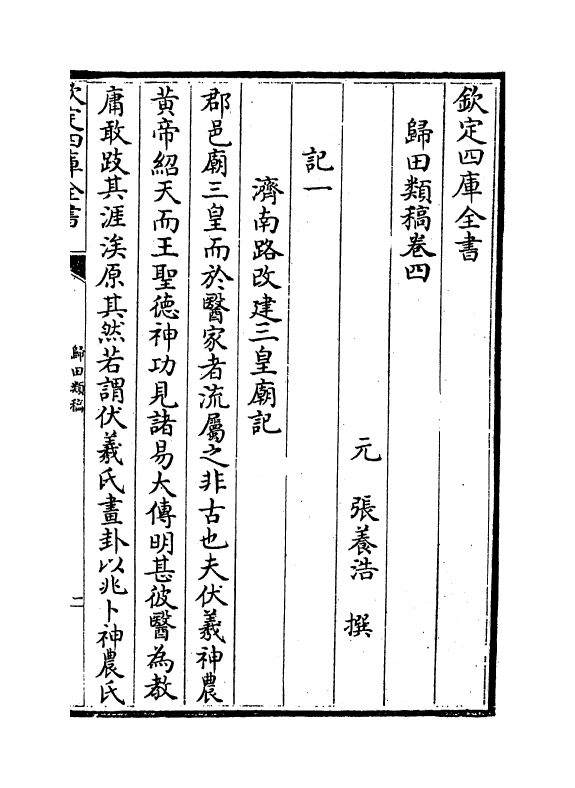 欽定四庫全書
歸田類稿卷四
元 張養浩 撰
記一
濟南路改建三皇廟記
郡邑廟三皇而於醫家者流屬之非古也夫伏羲神農
黃帝紹天而王聖德神功見諸易大傳明甚彼醫為教
庸敢跂其涯涘原其然若謂伏羲氏畫卦以兆卜神農氏
欽定四庫全書
歸田類稿